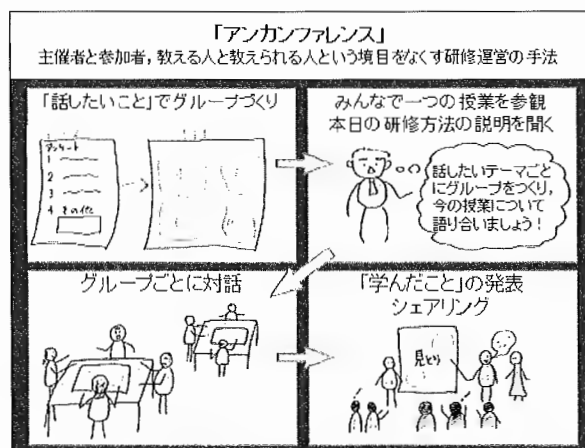 「アンカンファレンス」
主催者と参加者，教える人と教えられる人という境目をなくす研修運営の手法
「話したいこと」でグループづくり
アンケート
1
2
3
4 その他
みんなで一つの授業を参観
本日の研修方法の説明を聞く
話したいテーマごと
にグループをつくり，
今の授業について
語り合いましょう！
グループごとに対話
「学んだこと」の発表
シェアリング
見とり